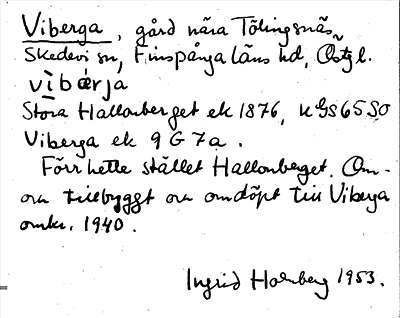 Viberga, gård nära Tölingsnäs,
Skedevi sn, Finspånga läns hd, Östgl.
vìbærja
Stora Hallonberget ek 1876, k GS65SO
Viberga ek 9 G 7a.
Förr hette stället Hallonberget. Om-
oa tillbyggt oa omdöpt till Viberga
omkr. 1940.
Ingrid Holmberg 1953.